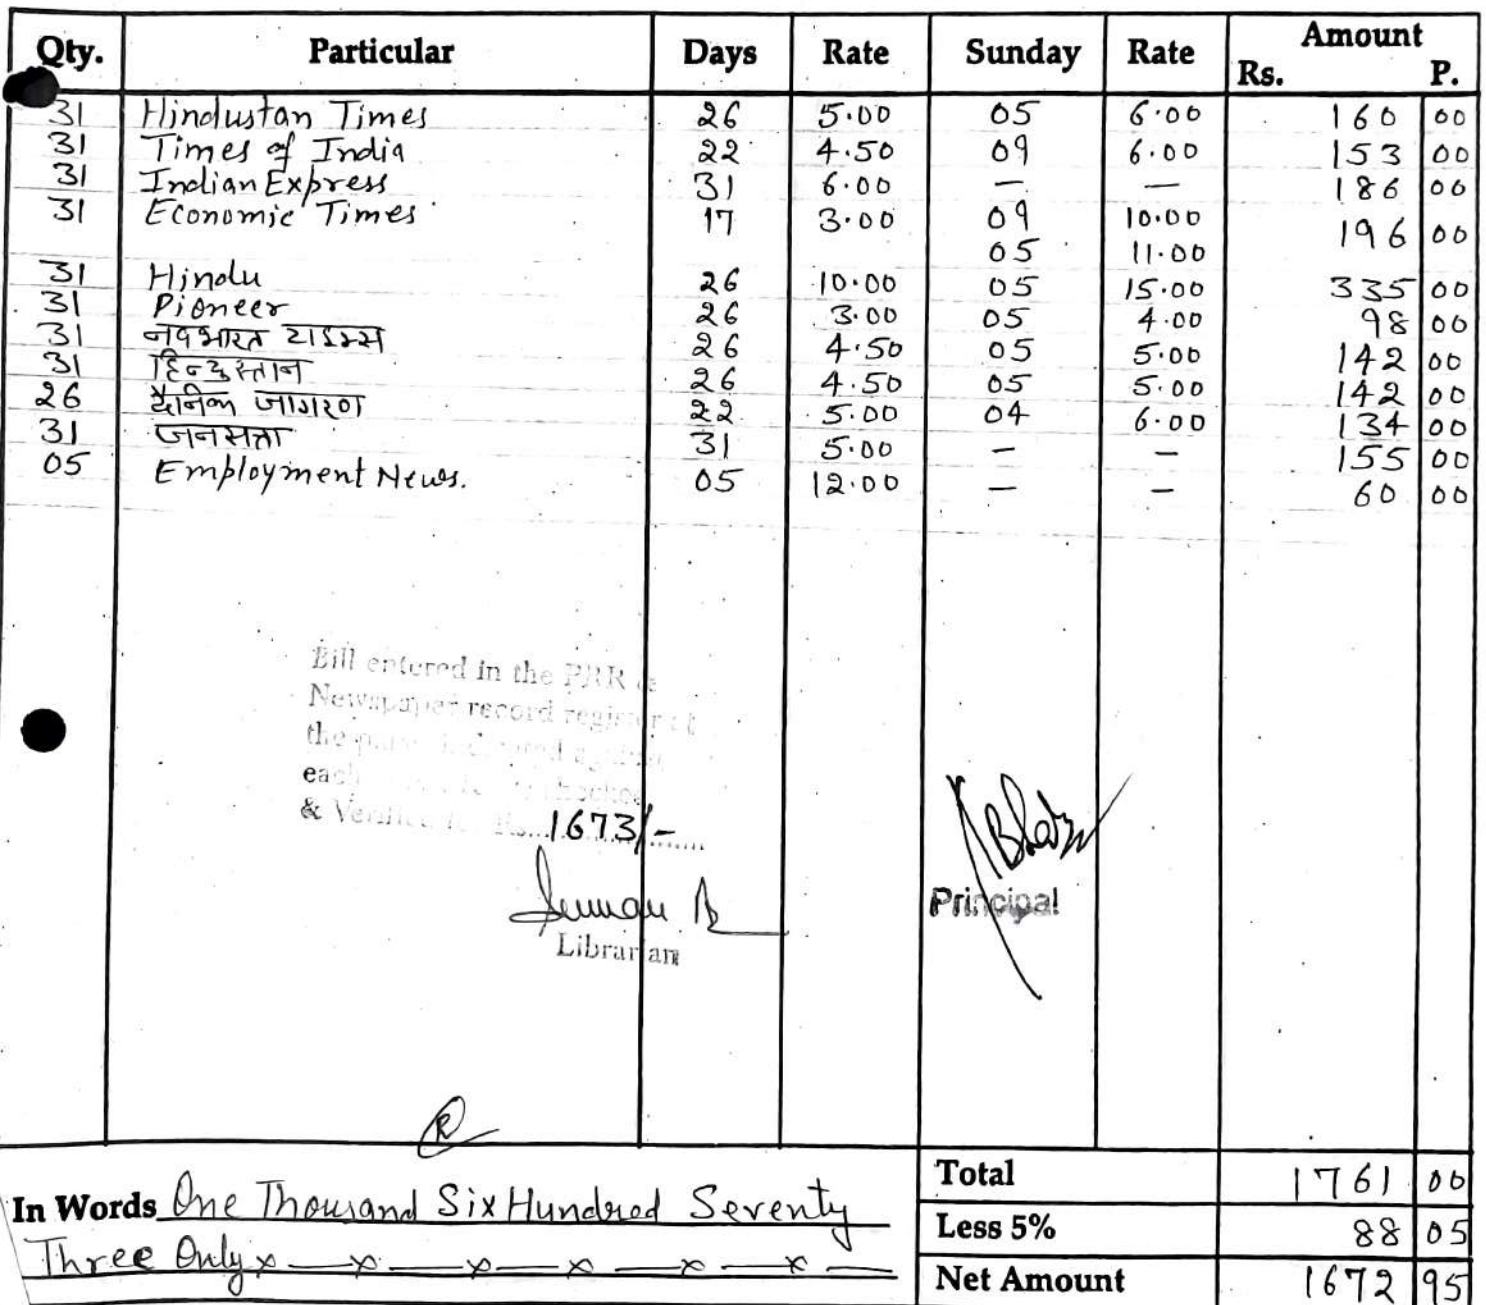 Qty. Particular Days Rate Sunday Rate Amount
Rs. P.
31 Hindustan Times 26 5.00 05 6.00 160 00
31 Times of India 22 4.50 09 6.00 153 00
31 Indian Express 31 6.00 — — 186 00
31 Economic Times 17 3.00 09 10.00 196 00
05 11.00
31 Hindu 26 10.00 05 15.00 335 00
31 Pioneer 26 3.00 05 4.00 98 00
31 नवभारत टाइम्स 26 4.50 05 5.00 142 00
31 हिन्दुस्तान 26 4.50 05 5.00 142 00
26 दैनिक जागरण 22 5.00 04 6.00 134 00
31 जनसत्ता 31 5.00 — — 155 00
05 Employment News. 05 12.00 — — 60 00
Bill entered in the
Newspaper record register
the
each
& 1673/-
Librarian
Principal
Total 1761 00
In Words One Thousand Six Hundred Seventy
Less 5% 88 05
Three Only x — x — x — x — x — x —
Net Amount 1672 95